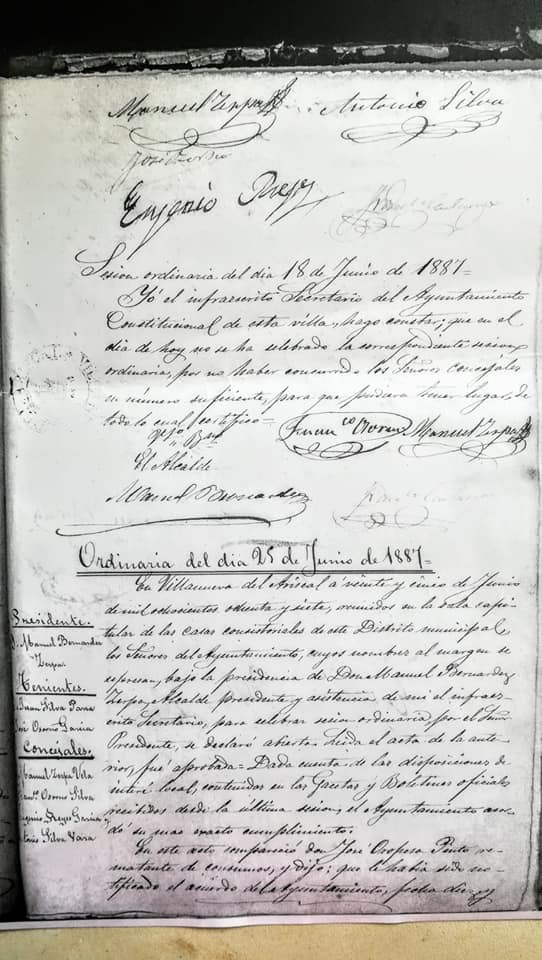 Manuel Zerpa Antonio Silva
José
Eugenio Reyes
Sesion ordinaria del dia 18 de Junio de 1887=
Yó el infraescrito Secretario del Ayuntamiento
Constitucional de esta villa, hago constar; que en el
dia de hoy no se ha celebrado la correspondiente sesion
ordinaria, por no haber concurrido los Señores concejales
en número suficiente, para que pudiera tener lugar, de
todo lo cual certifico=
Vº Bº
Franco Manuel Zerpa
El Alcalde
Manuel Bernardez
Ordinaria del dia 25 de Junio de 1887=
En Villanueva del Ariscal á veinte y cinco de Junio
de mil ochocientos ochenta y siete, reunidos en la sala capi-
tular de las casas consistoriales de este Distrito municipal,
los Señores del Ayuntamiento, cuyos nombres al margen se
espresan, bajo la presidencia de Don Manuel Bernardez
Zerpa, Alcalde presidente y asistencia de mi el infraes-
crito Secretario, para celebrar sesion ordinaria, por el Señor
Presidente, se declaró abierta. Leida el acta de la ante-
rior, fué aprobada= Dada cuenta de las disposiciones de
interé local, contenidas en las Gacetas y Boletines oficiales
recibidos desde la última sesion, el Ayuntamiento acor-
dó su mas exacto cumplimiento.
En este acto compareció don José Oropesa Pinto, re-
matante de consumos, y dijo: que le habia sido no-
tificado el acuerdo del Ayuntamiento, fecha diez y
Presidente.
D. Manuel Bernardez
Zerpa.
Tenientes.
Juan Silva Parra
José Osorno Garcia
Concejales.
Manuel Zerpa Vela
Osorno Silva
Eugenio Reyes Garcia
Antonio Silva Vara